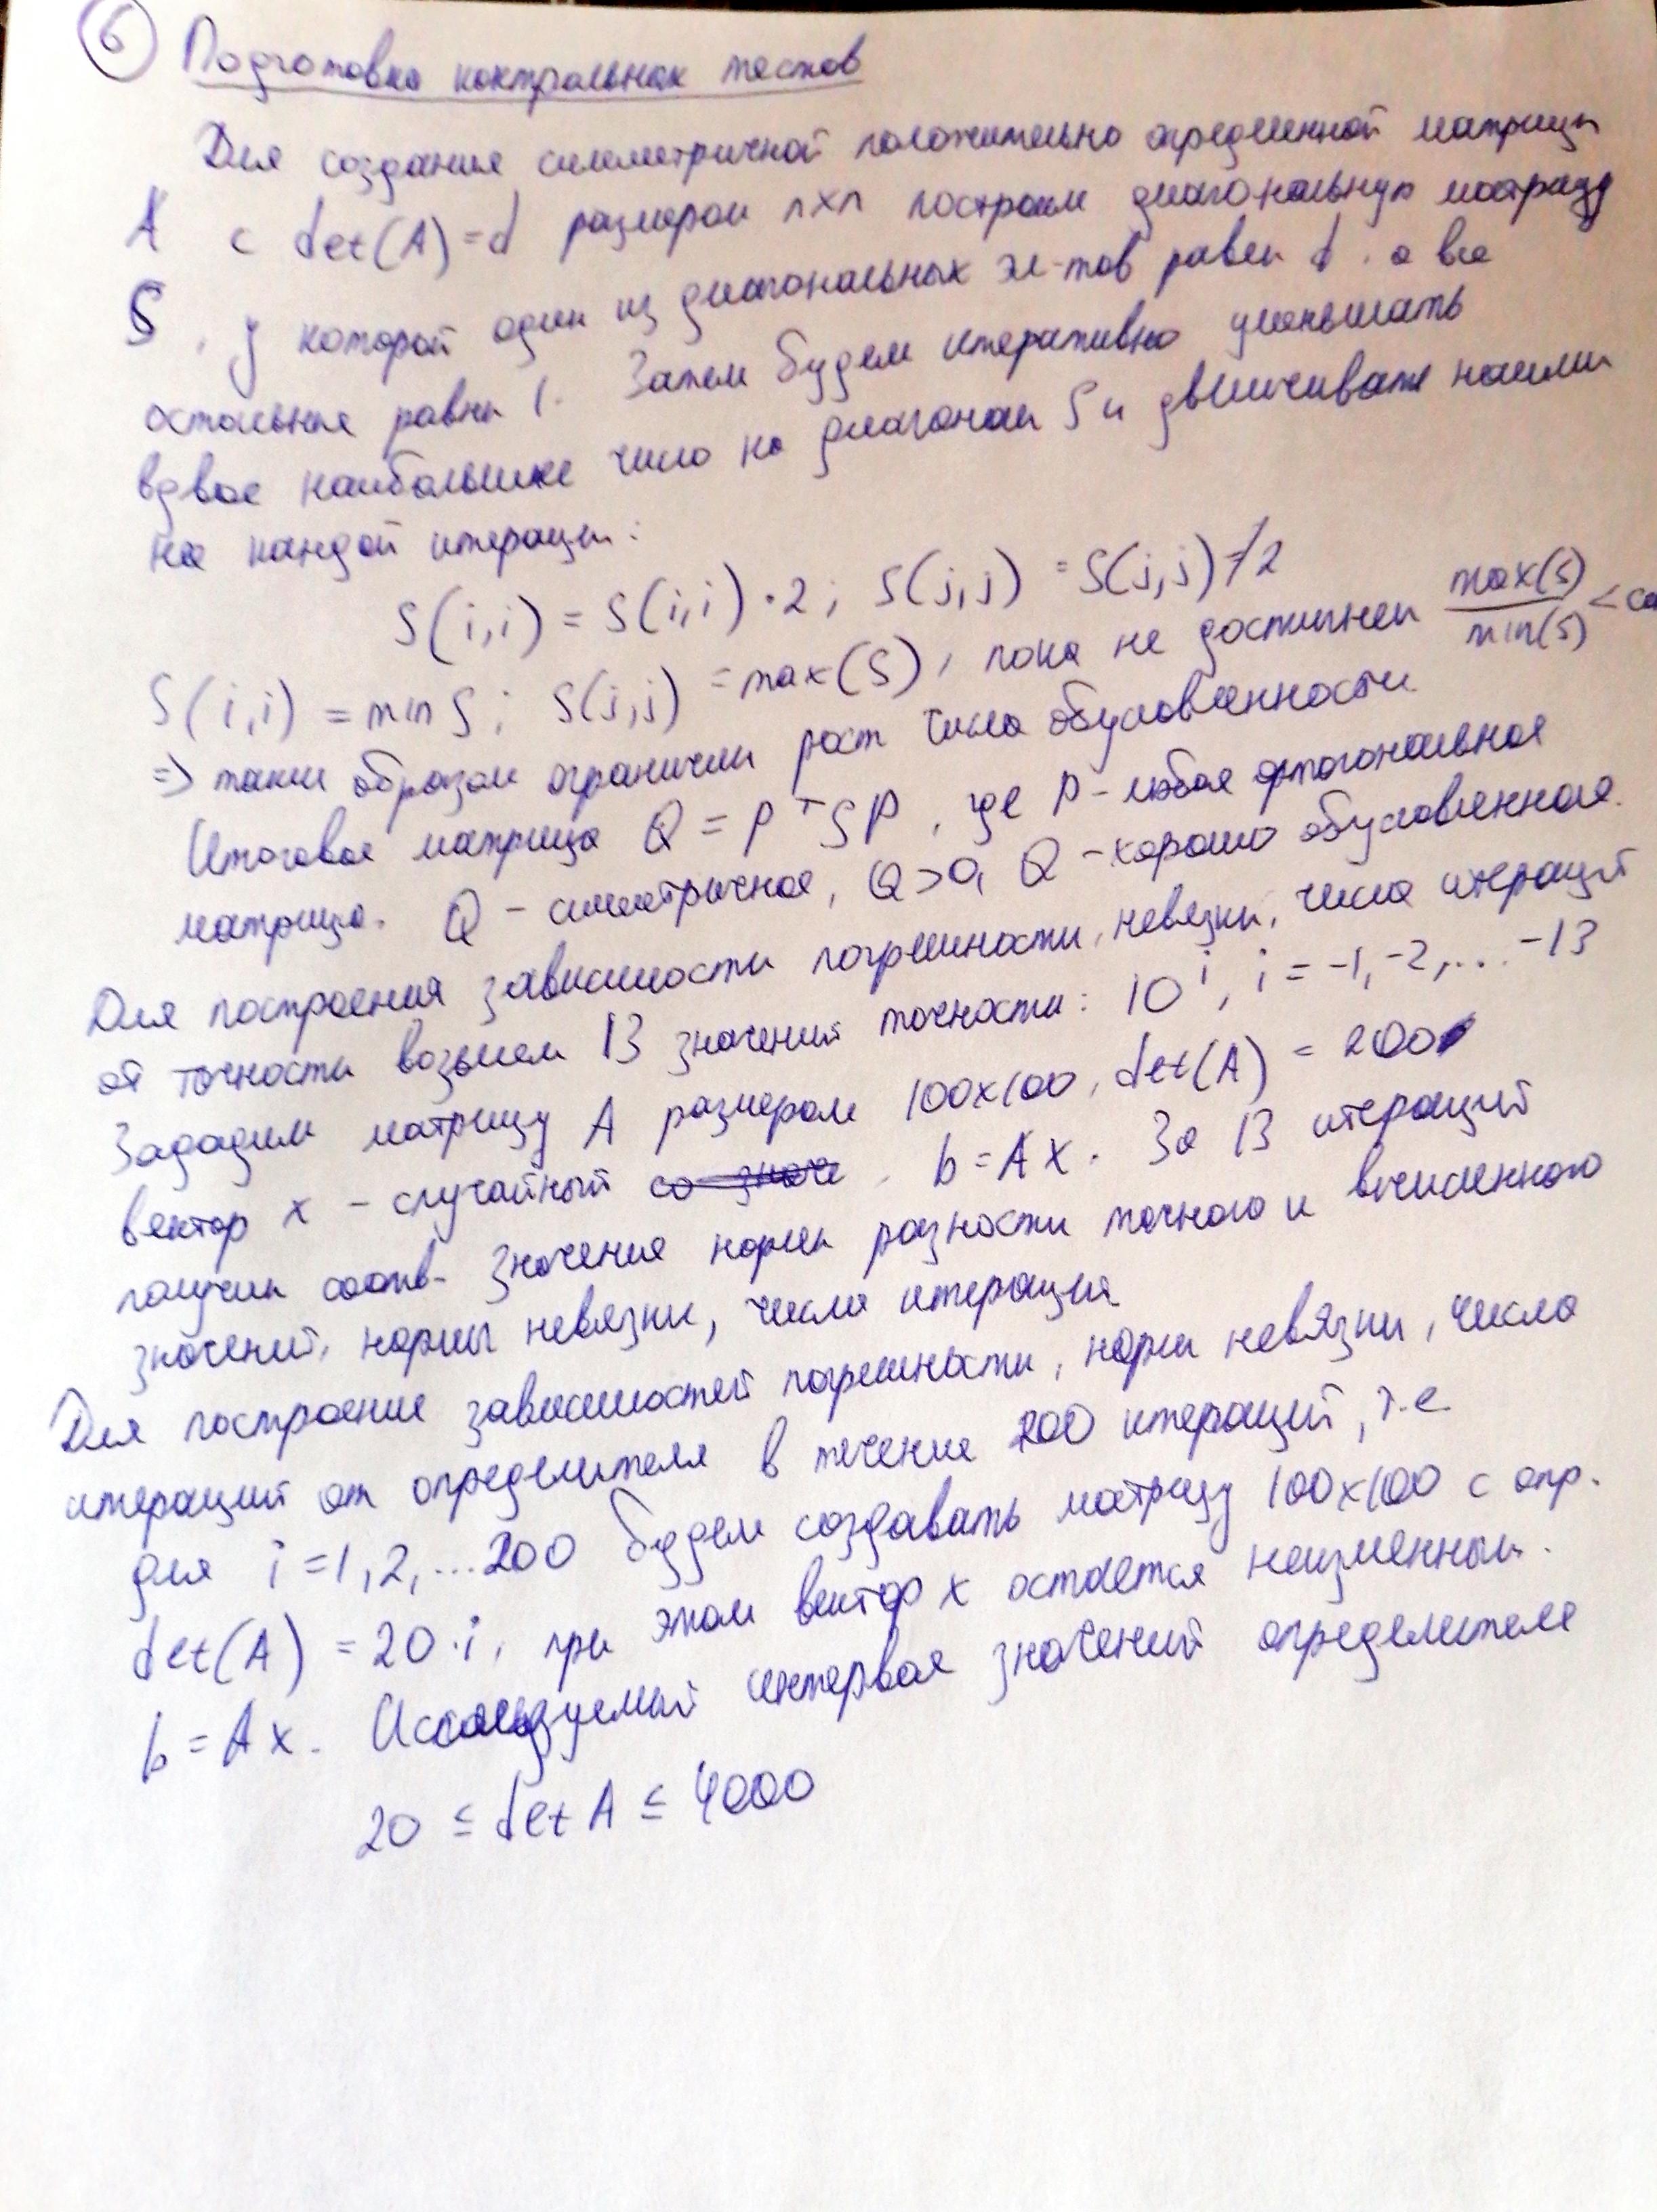 6 Подготовка контрольных тестов
Для создания симметричной положительно определенной матрицы
A с det(A)=d размером n×n построим диагональную матрицу
S, у которой один из диагональных эл-тов равен d, а все
остальные равны 1. Затем будем итеративно уменьшать
вдвое наибольшее число на диагонали S и увеличивать наим
на каждой итерации:
S(i,i) = S(i,i)·2; S(j,j) = S(j,j)/2
S(i,i) = min S; S(j,j) = max(S), пока не достигнем max(S)/min(S) < co
=> таким образом ограничим рост числа обусловленности.
Итоговая матрица Q = PᵀSP, где P - любая ортогональная
матрица. Q - симметричная, Q>0, Q - хорошо обусловленная.
Для построения зависимости погрешности, невязки, числа итераций
от точности возьмем 13 значений точности: 10ⁱ, i = -1, -2, ... -13
Зададим матрицу A размером 100×100, det(A) = 200
вектор x - случайный b = Ax. За 13 итераций
получим соотв. значения норм разности точного и вычисленного
значений, нормы невязки, числа итерация
Для построение зависимостей погрешности, норм невязки, числа
итераций от определителя в течение 200 итераций, т.е.
для i = 1, 2, ... 200 будем создавать матрицу 100×100 с опр.
det(A) = 20·i, при этом вектор x остается неизменным.
b = Ax. Используемый интервал значений определителя
20 ≤ det A ≤ 4000